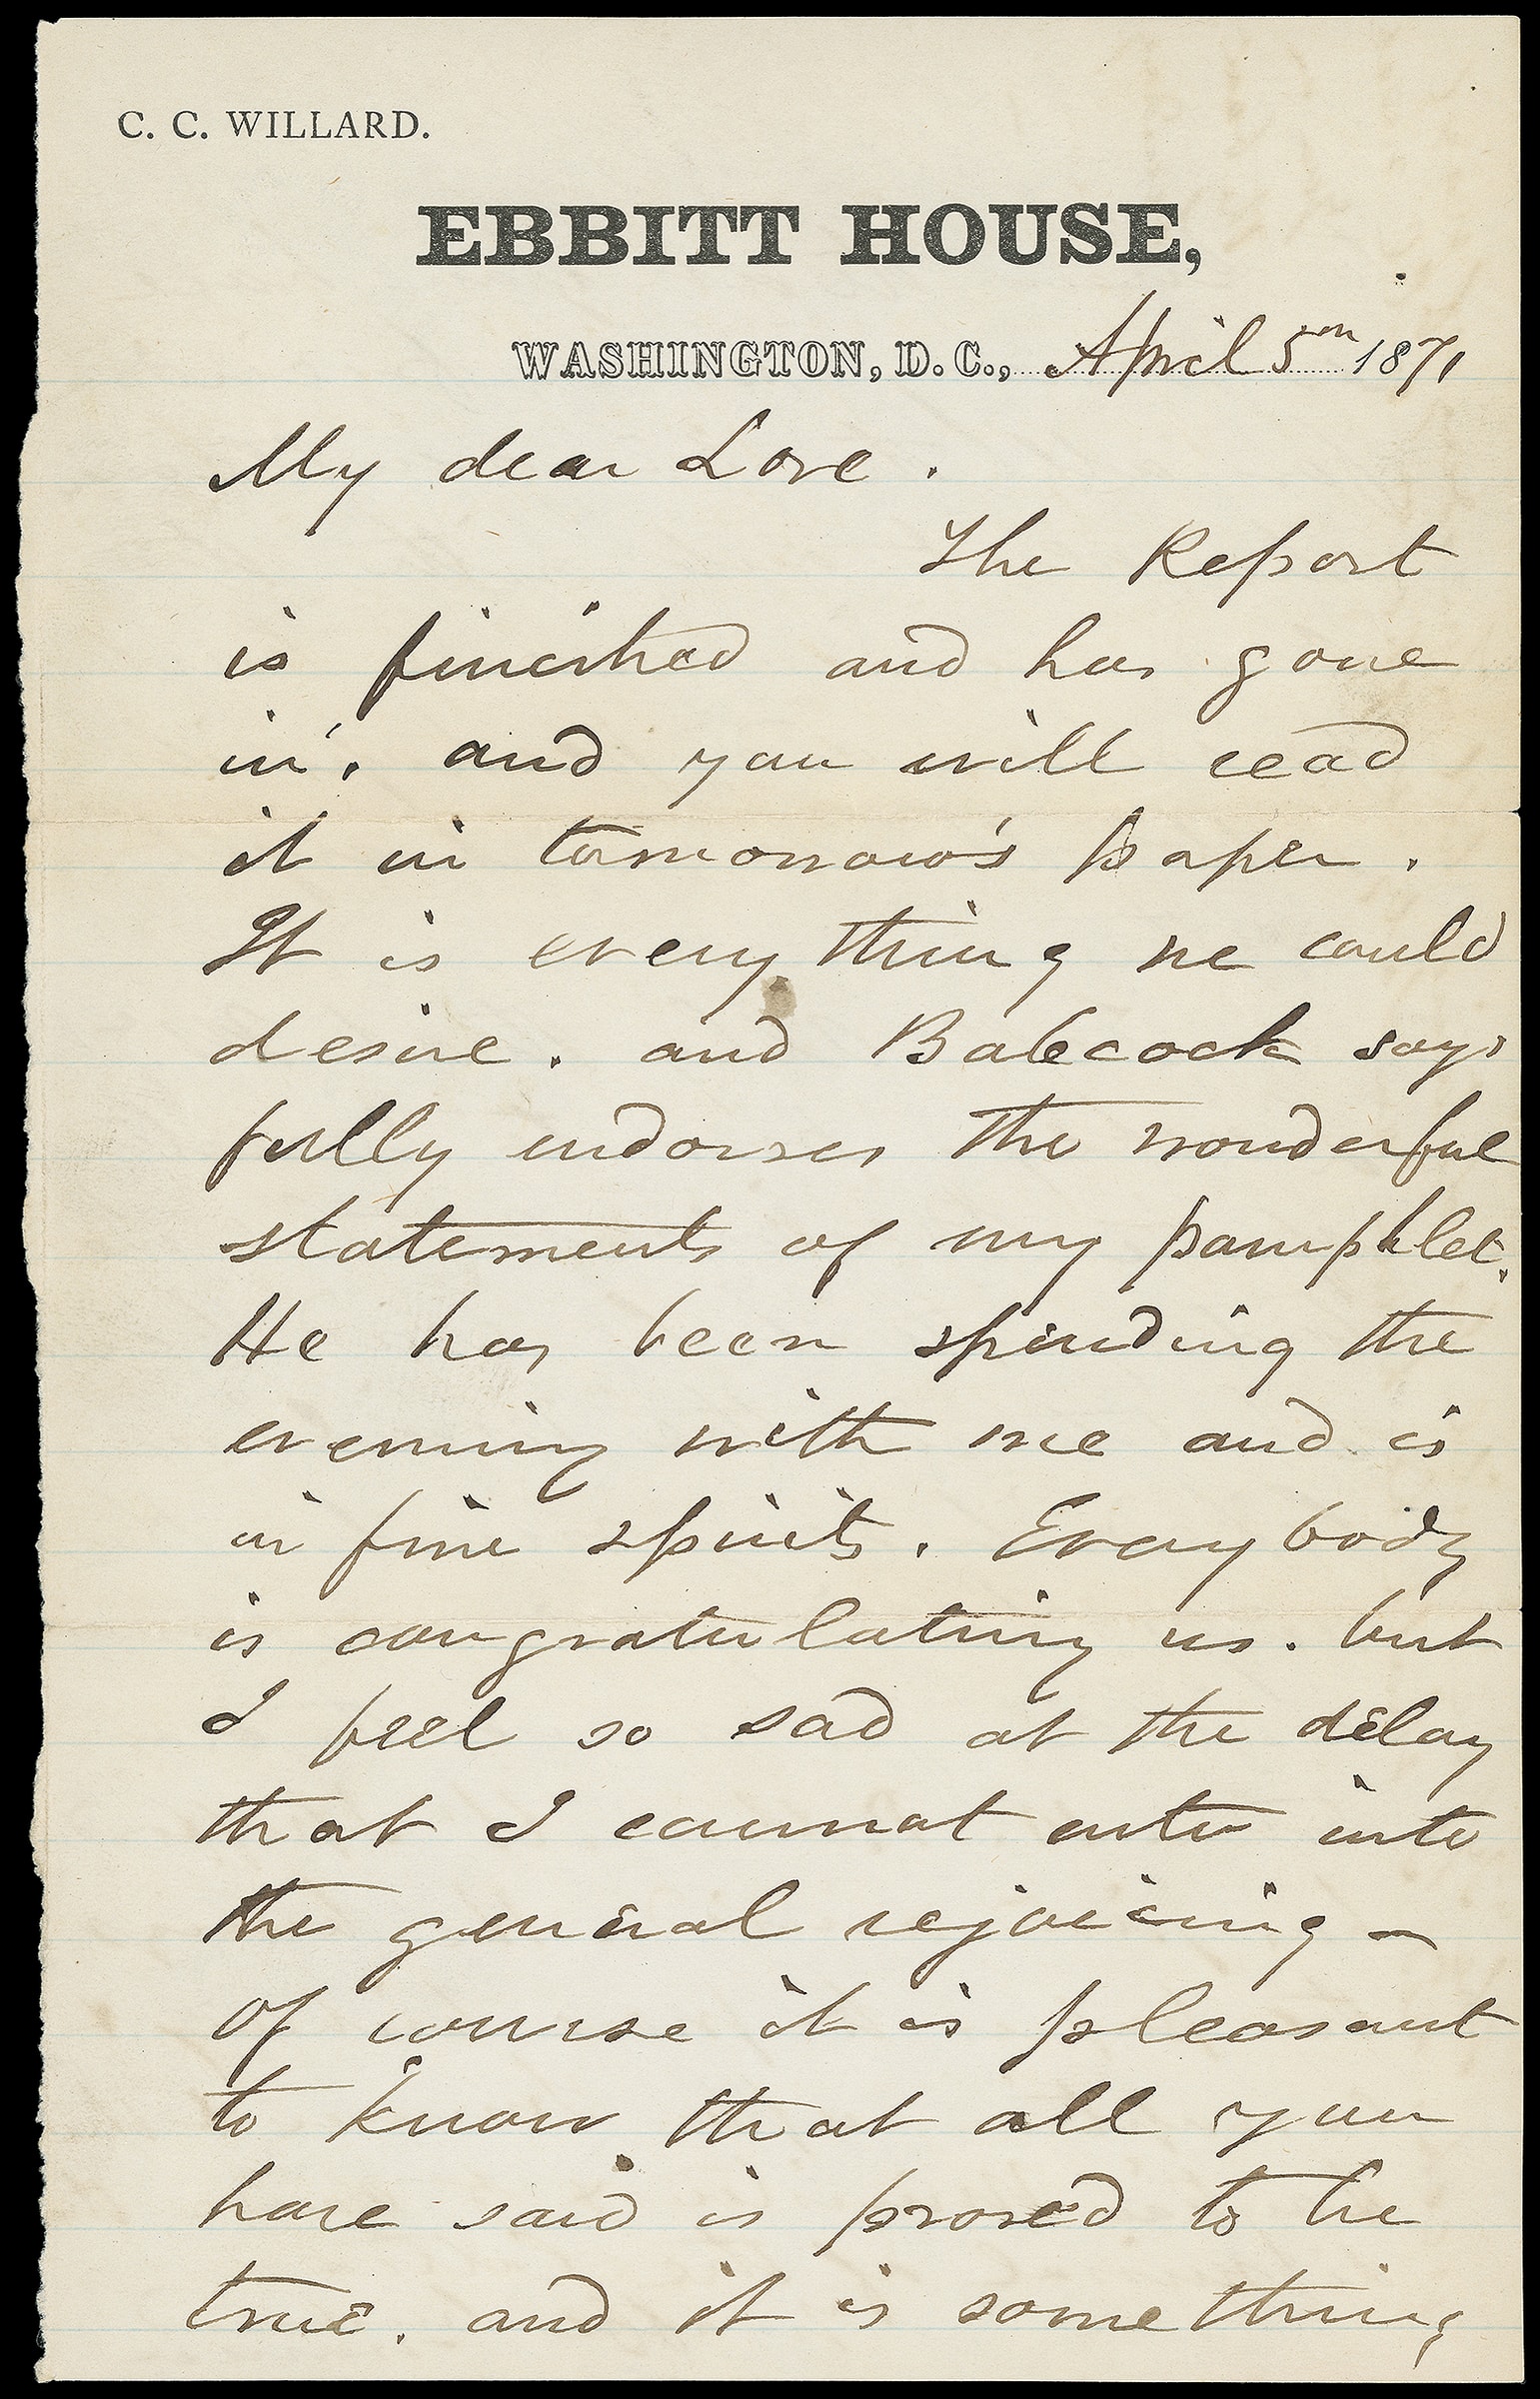 C. C. WILLARD.
EBBITT HOUSE,
WASHINGTON, D. C., April 5th 1871
My dear Love.
The Report
is finished and has gone
in. and you will read
it in tomorrow's paper.
It is every thing we could
desire. and Babcock says
fully endorses the wonderful
statements of my pamphlet.
He has been spending the
evening with me and is
in fine spirits. Every body
is congratulating us. but
I feel so sad at the delay
that I cannot enter into
the general rejoicing –
of course it is pleasant
to know that all you
have said is proved to be
true. and it is something